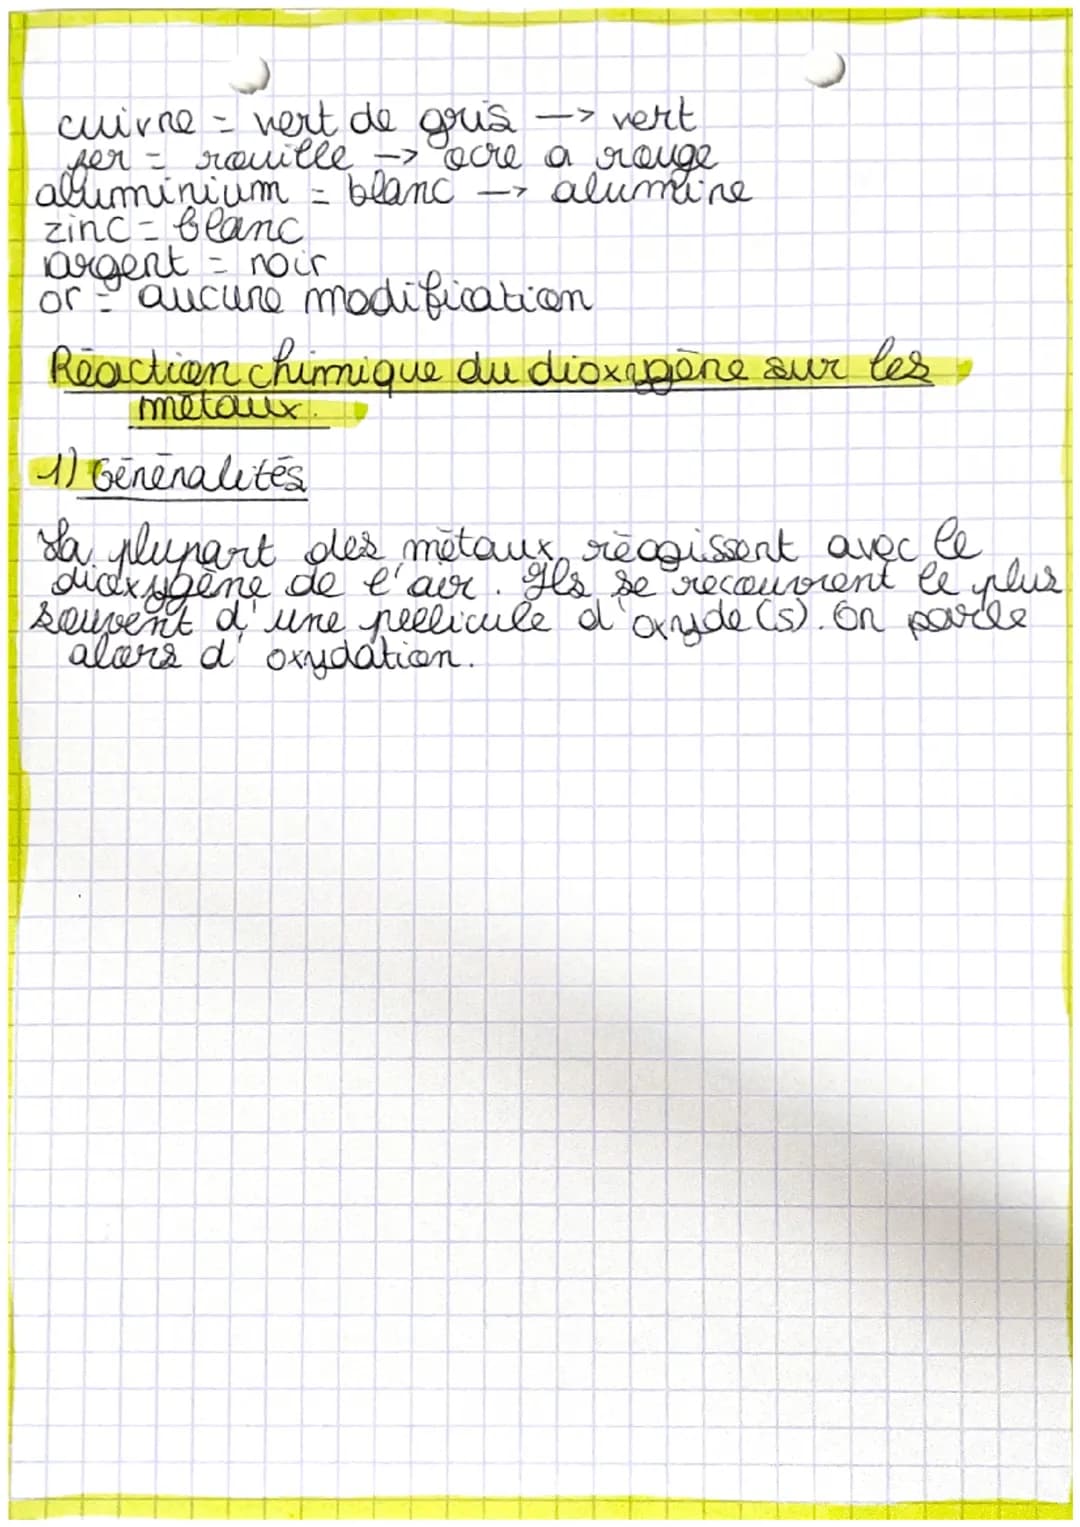 cuivre = vert de gris --> vert
fer = rouille --> ocre a rouge
alluminium = blanc --> alumine
zinc = blanc
argent = noir
or = aucune modification
Réaction chimique du dioxygène sur les
métaux.
1) Généralités
La plupart des métaux réagissent avec le
dioxygène de l'air. Ils se recouvrent le plus
souvent d'une pellicule d'oxyde(s). On parle
alors d'oxydation.